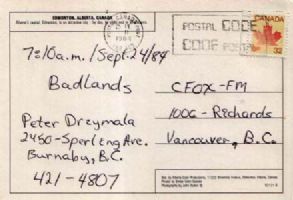 EDMONTON, ALBERTA, CANADA
POSTAL CODE
CODE POSTAL
CANADA
32
7:10a.m./Sept.24/84
Badlands
Peter Dreymala
2450-Sperling Ave.
Burnaby, B.C.
421-4807
CFOX-FM
1006-Richards
Vancouver, B.C.